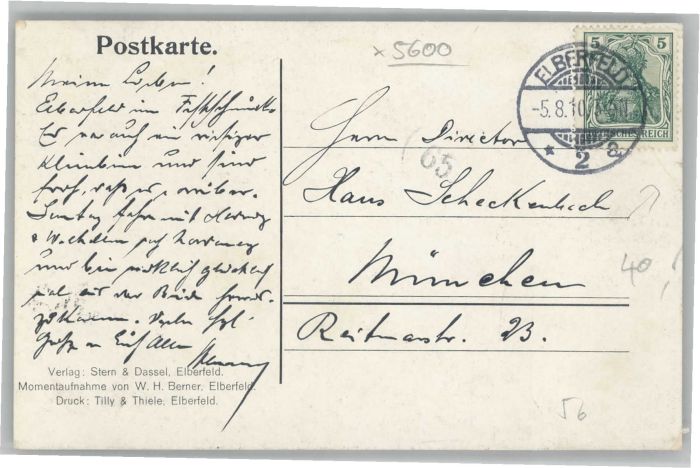 Postkarte.
x 5600
Meine Lieben!
Elberfeld im Festschmuck.
Es war auch ein riesiger
und sind
froh, daß es vorüber.
Sonntag fahre mit
und bin wirklich glücklich
mal aus der Bude heraus-
zukommen. Viele hzl.
Grüße an Euch Alle
Verlag: Stern & Dassel, Elberfeld.
Momentaufnahme von W. H. Berner, Elberfeld.
Druck: Tilly & Thiele, Elberfeld.
ELBERFELD
-5.8.10
* 2 a
5 5
DEUTSCHES REICH
65
Herrn Director
Hans Scheckenbach
München
Reitmorstr. 23.
40
56